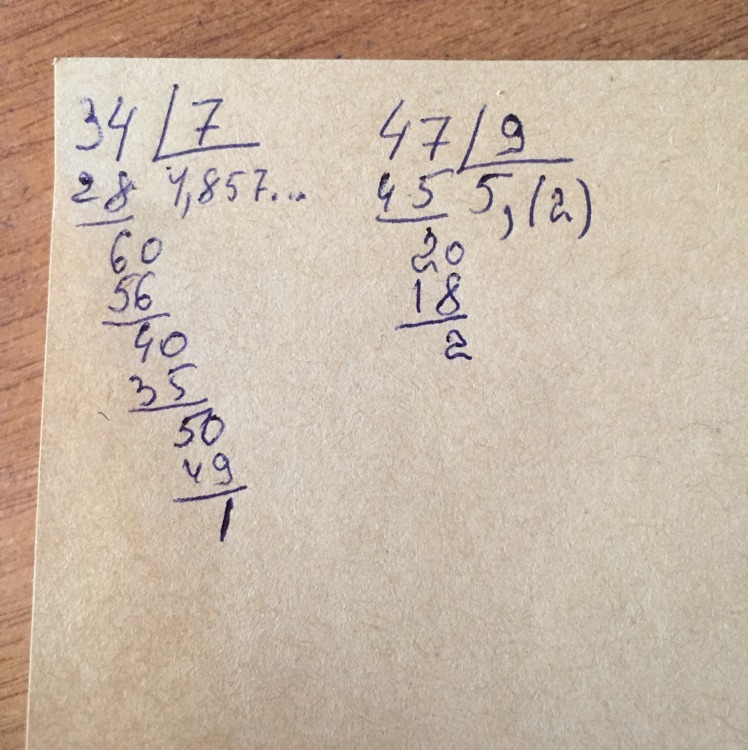 34 | 7
28 4,857...
60
56
40
35
50
49
1
47 | 9
45 5,(2)
20
18
2